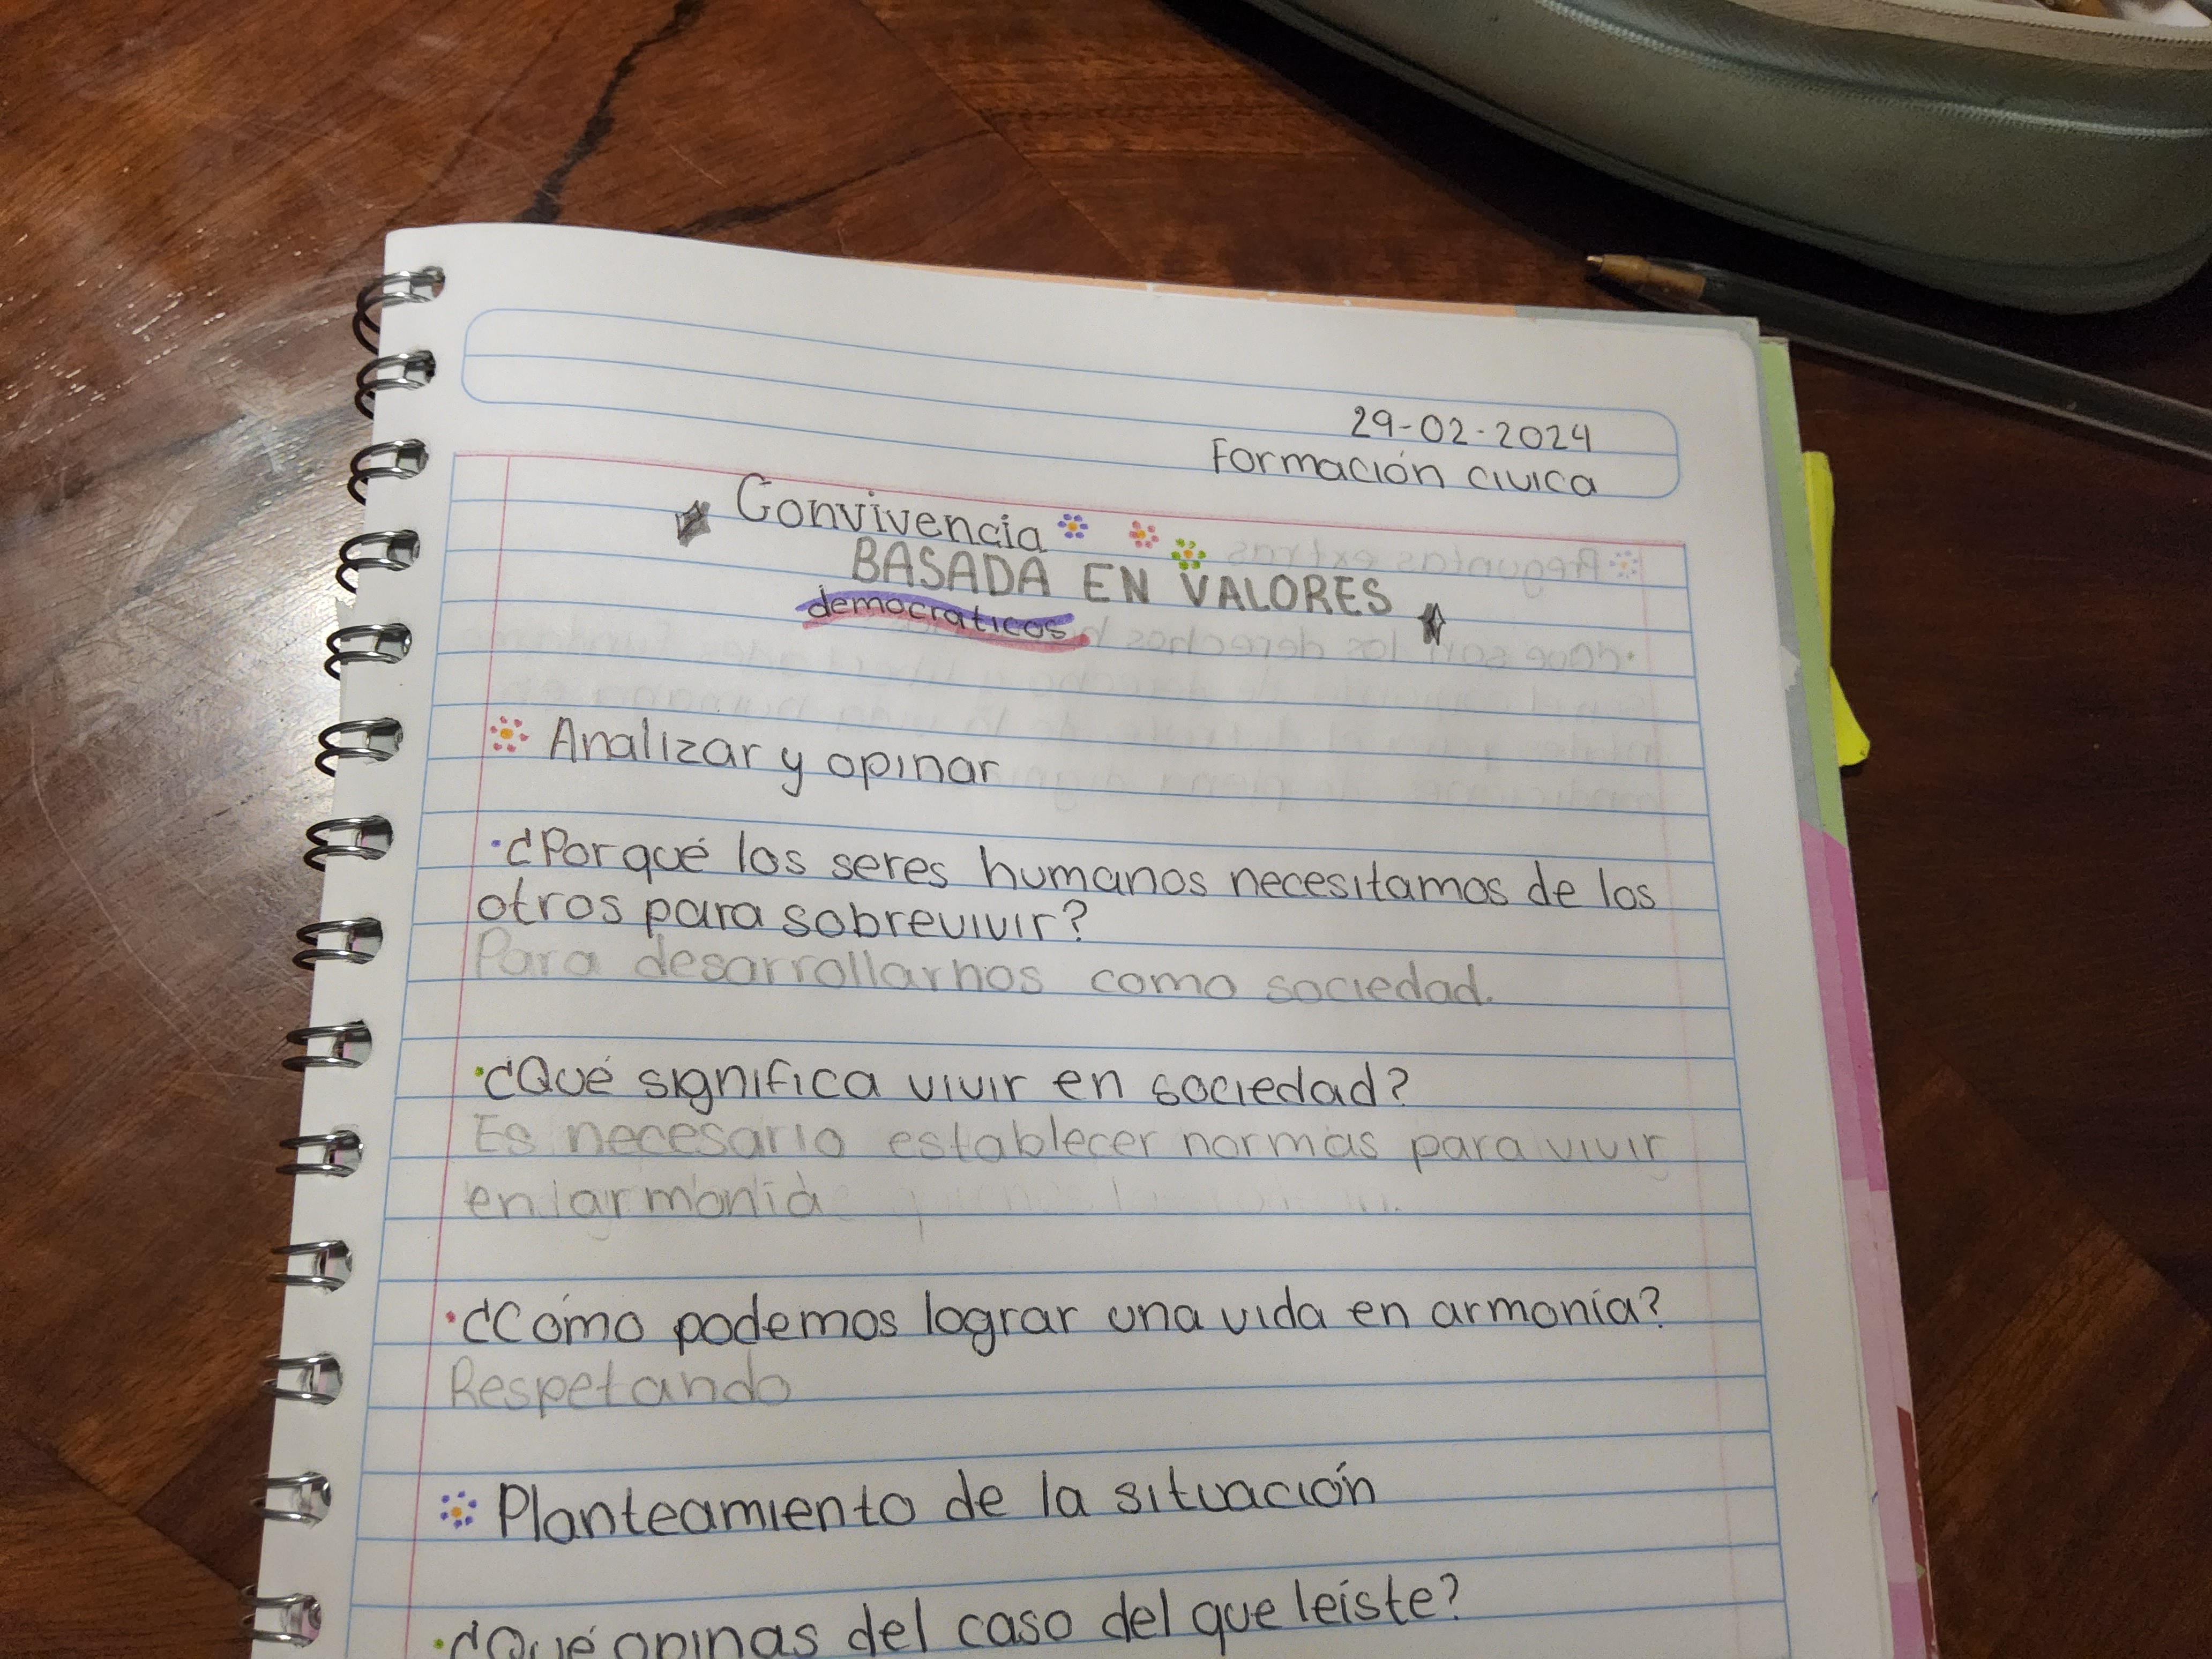 29-02-2024
Formación civica
Convivencia
BASADA EN VALORES
democraticos
Analizar y opinar
·¿Porqué los seres humanos necesitamos de los
otros para sobrevivir?
Para desarrollarnos como sociedad.
·¿Qué significa vivir en sociedad?
Es necesario establecer normas para vivir
en armonía
·¿Cómo podemos lograr una vida en armonía?
Respetando
Planteamiento de la situación
·¿Qué opinas del caso del que leíste?